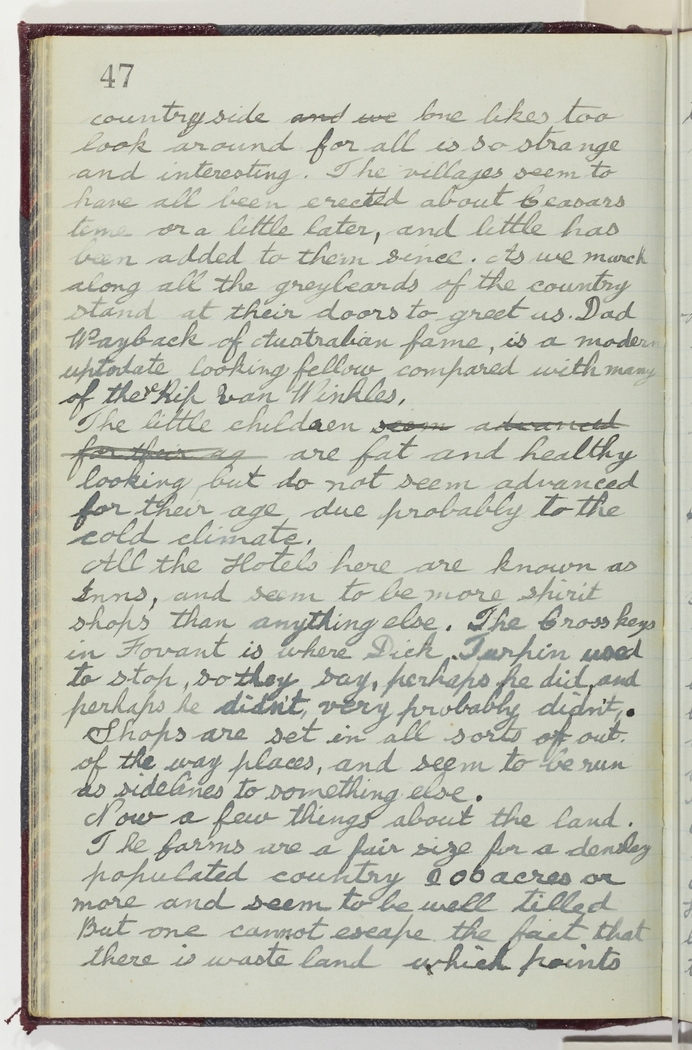 47
countryside ~~and we~~ one likes too
look around for all is so strange
and interesting. The villages seem to
have all been erected about Ceasars
time or a little later, and little has
been added to them since. As we march
along all the greybeards of the country
stand at their doors to greet us. Dad
Wayback of Australian fame, is a modern
uptodate looking fellow compared with many
of these Rip Van Winkles.
The little children ~~seem advanced~~
~~for their ag~~ are fat and healthy
looking but do not seem advanced
for their age, due probably to the
cold climate.
All the Hotels here are known as
Inns, and seem to be more spirit
shops than anything else. The Cross keys
in Fovant is where Dick Turpin used
to stop, so they say, perhaps he did, and
perhaps he didn't, very probably didn't.
Shops are set in all sorts of out.
of the way places, and seem to be run
as sidelines to something else.
Now a few things about the land.
The farms are a fair size for a densley
populated country 000 acres or
more and seem to be well tilled
But one cannot escape the fact that
there is waste land which points